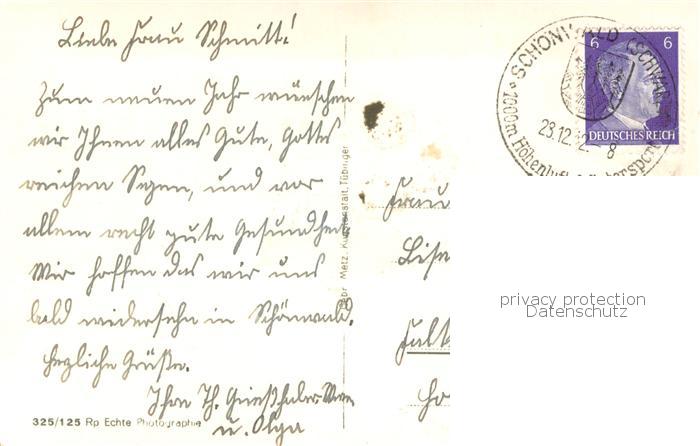 Liebe Frau Schmitt!
Zum neuen Jahr wünschen
wir Ihnen alles Gute, Gottes
reichen Segen, und vor
allem recht gute Gesundheit.
Wir hoffen das wir uns
bald wiedersehn in Schönwald.
Herzliche Grüße.
Ihre Th.
u. Olga
325/125 Rp Echte Photographie
Gebr. Metz, Kunstanstalt, Tübingen
SCHÖNWALD (SCHWARZW
1000m Höhenluft
23.12.42. 8
6 6
DEUTSCHES REICH
Frau
Lise
Falt
Ho
privacy protection
Datenschutz